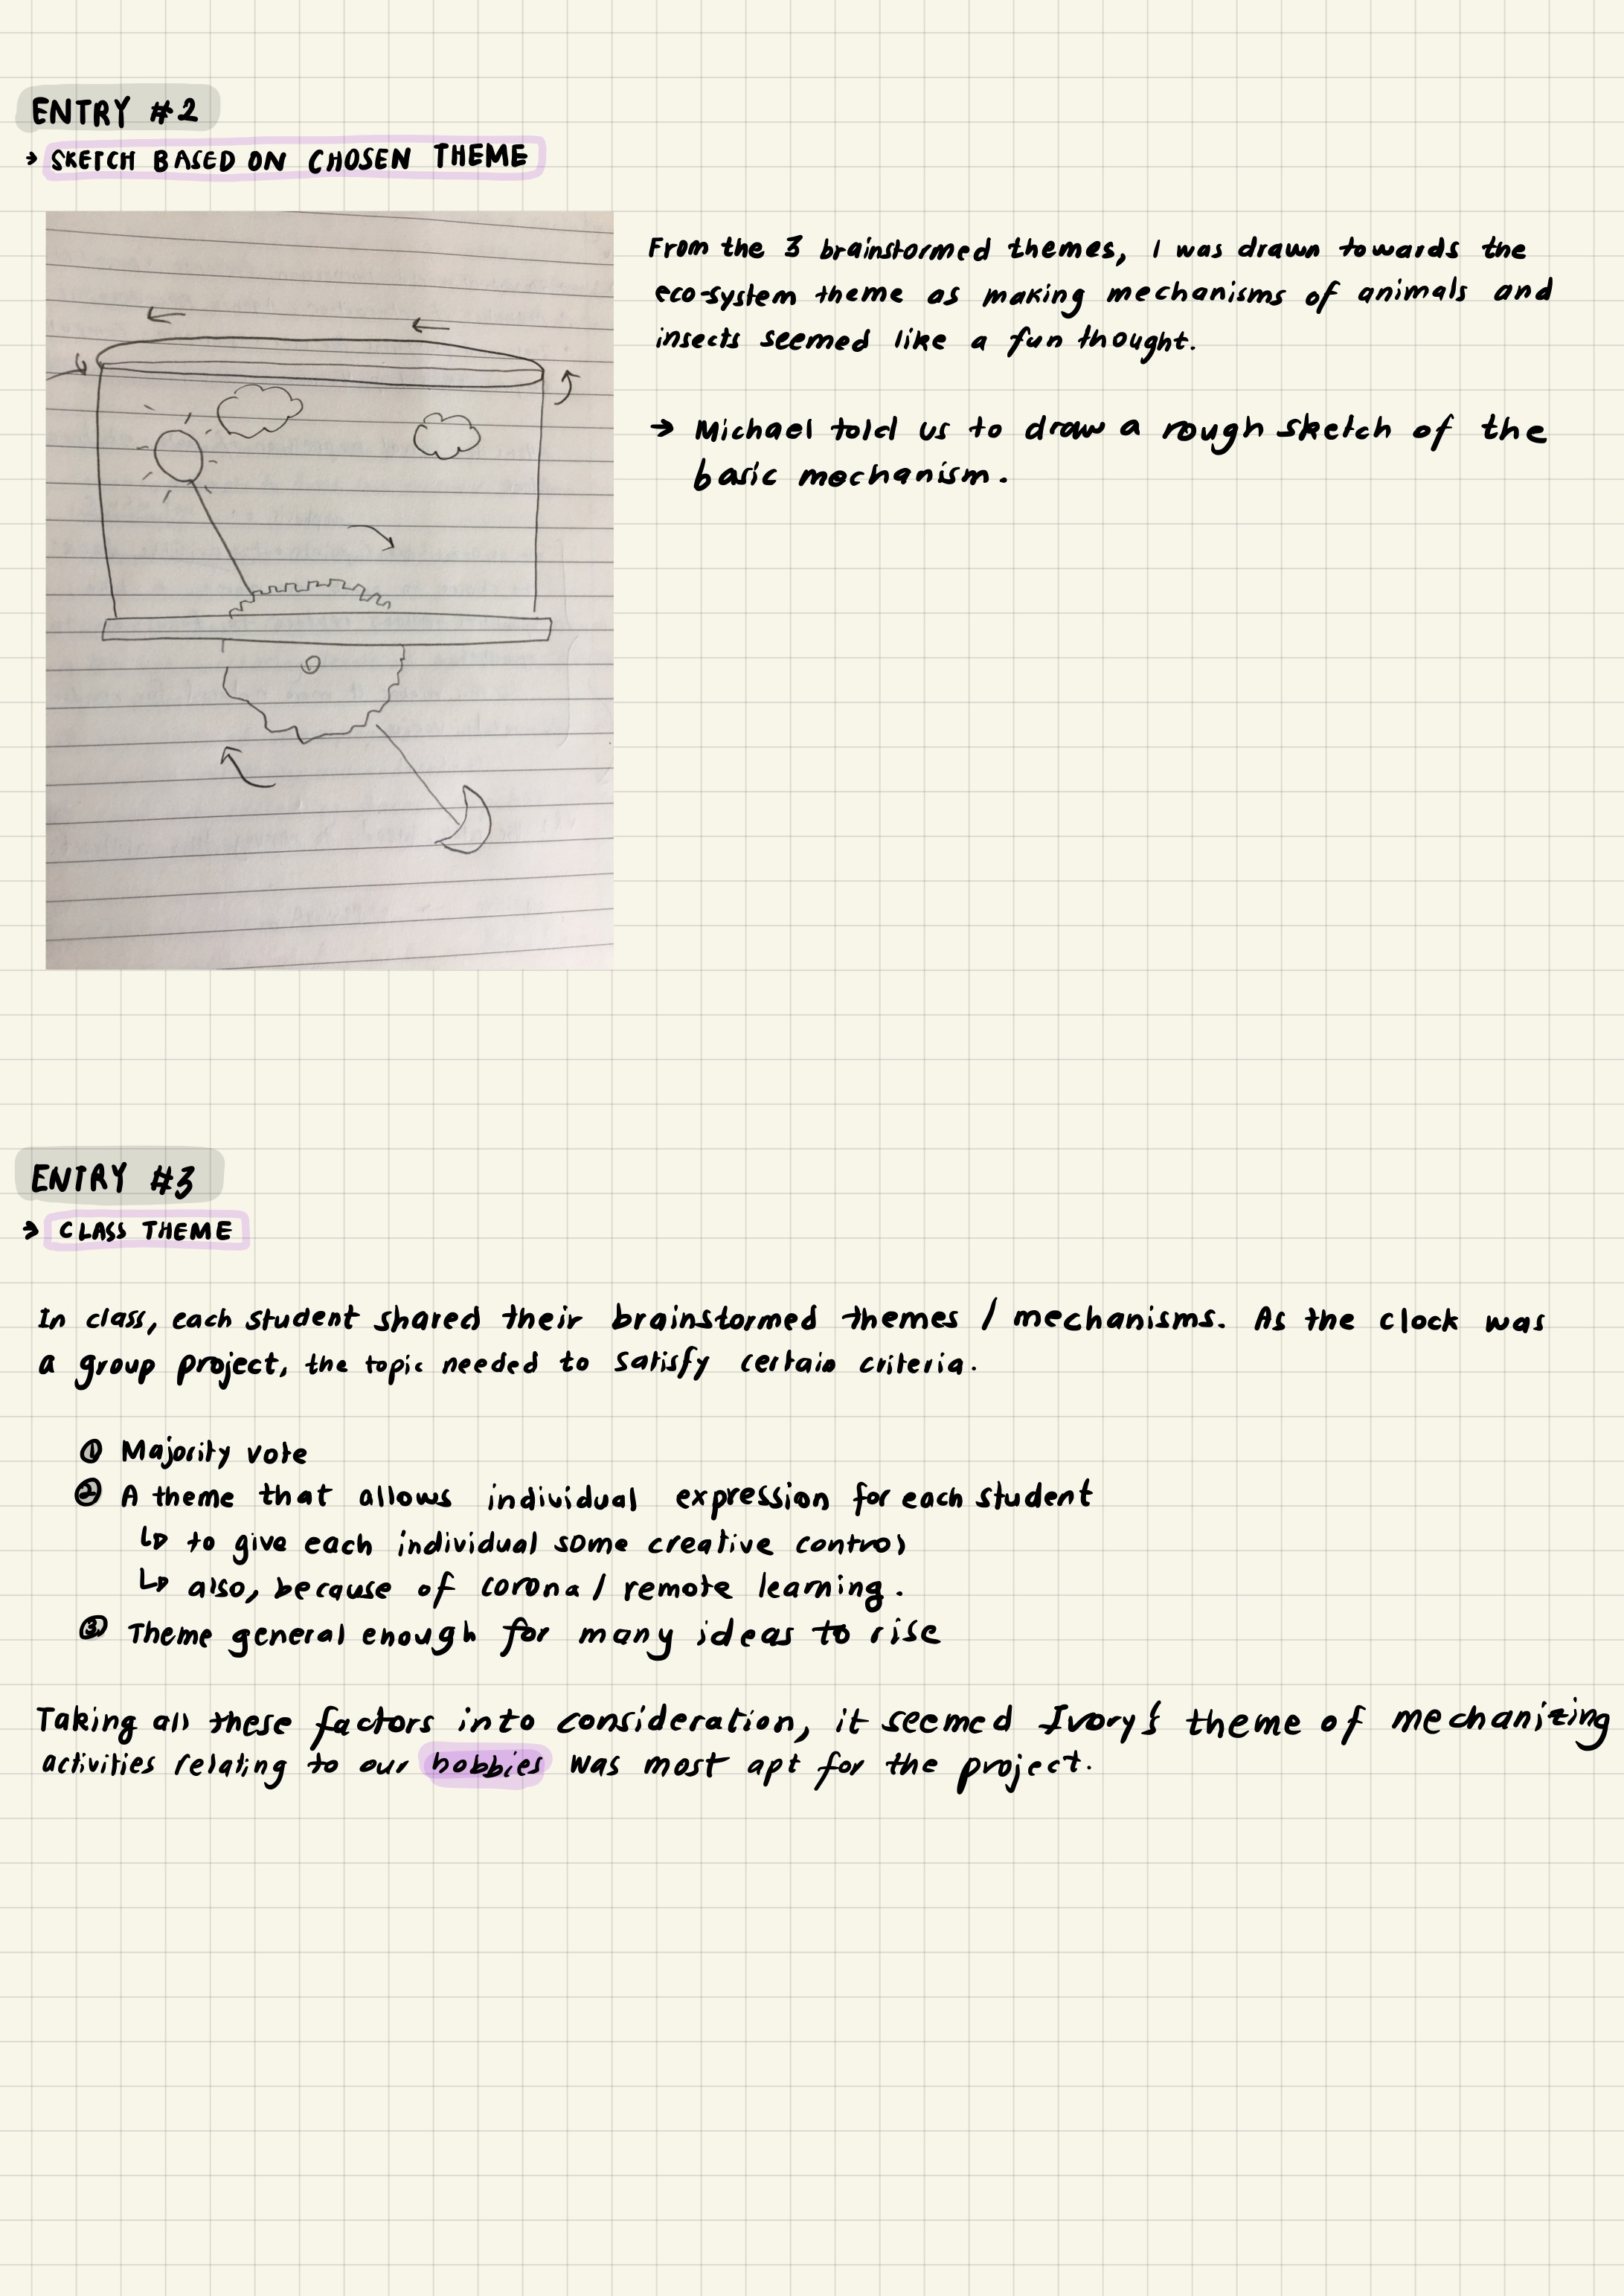 ENTRY #2
→ SKETCH BASED ON CHOSEN THEME
From the 3 brainstormed themes, I was drawn towards the
eco-system theme as making mechanisms of animals and
insects seemed like a fun thought.
→ Michael told us to draw a rough sketch of the
basic mechanism.
ENTRY #3
→ CLASS THEME
In class, each student shared their brainstormed themes / mechanisms. As the clock was
a group project, the topic needed to satisfy certain criteria.
① Majority vote
② A theme that allows individual expression for each student
↳ to give each individual some creative control
↳ also, because of corona / remote learning.
③ Theme general enough for many ideas to rise
Taking all these factors into consideration, it seemed Ivory's theme of mechanizing
activities relating to our hobbies was most apt for the project.